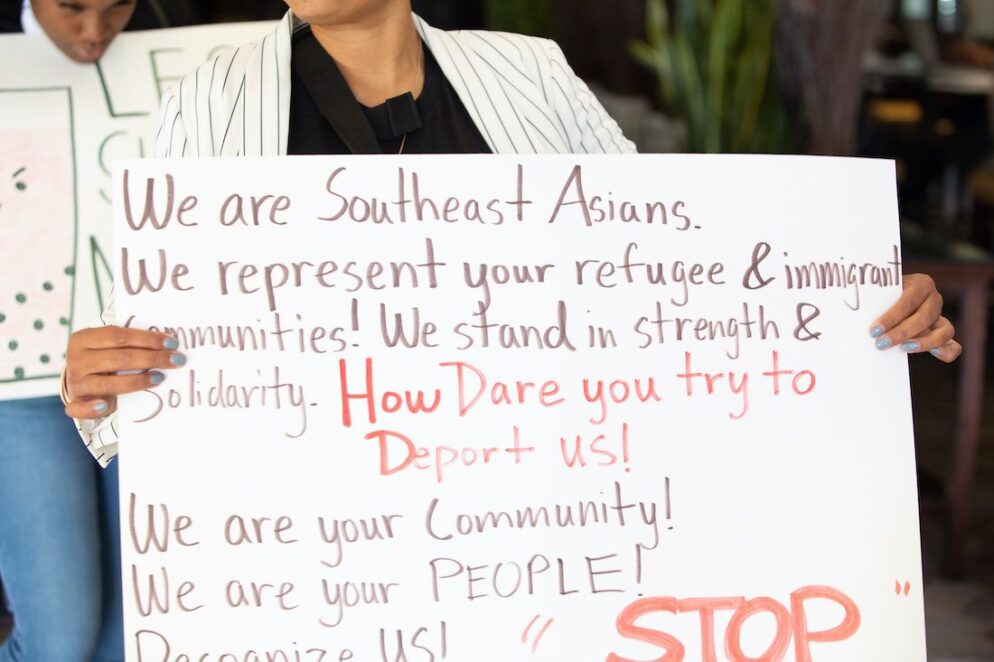 We are Southeast Asians.
We represent your refugee & immigrant
Communities! We stand in strength &
Solidarity. How Dare you try to
Deport us!
We are your Community!
We are your PEOPLE!
Recognize US! "STOP"